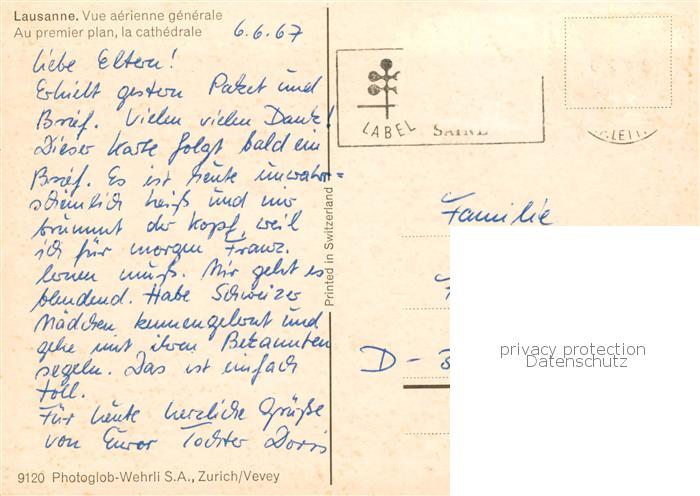 Lausanne. Vue aérienne générale
Au premier plan, la cathédrale
6.6.67
liebe Eltern!
Erhielt gestern Paket und
Brief. Vielen vielen Dank!
Dieser Karte folgt bald ein
Brief. Es ist heute unwahr=
scheinlich heiß und mir
brummt der Kopf, weil
ich für morgen Franz.
lernen muß. Mir geht es
blendend. Habe Schweizer
Mädchen kennengelernt und
gehe mit ihren Bekannten
segeln. Das ist einfach
toll.
Für heute herzliche Grüße
von Eurer Tochter Doris
9120 Photoglob-Wehrli S.A., Zurich/Vevey
Printed in Switzerland
LABEL
Familie
D -
privacy protection
Datenschutz